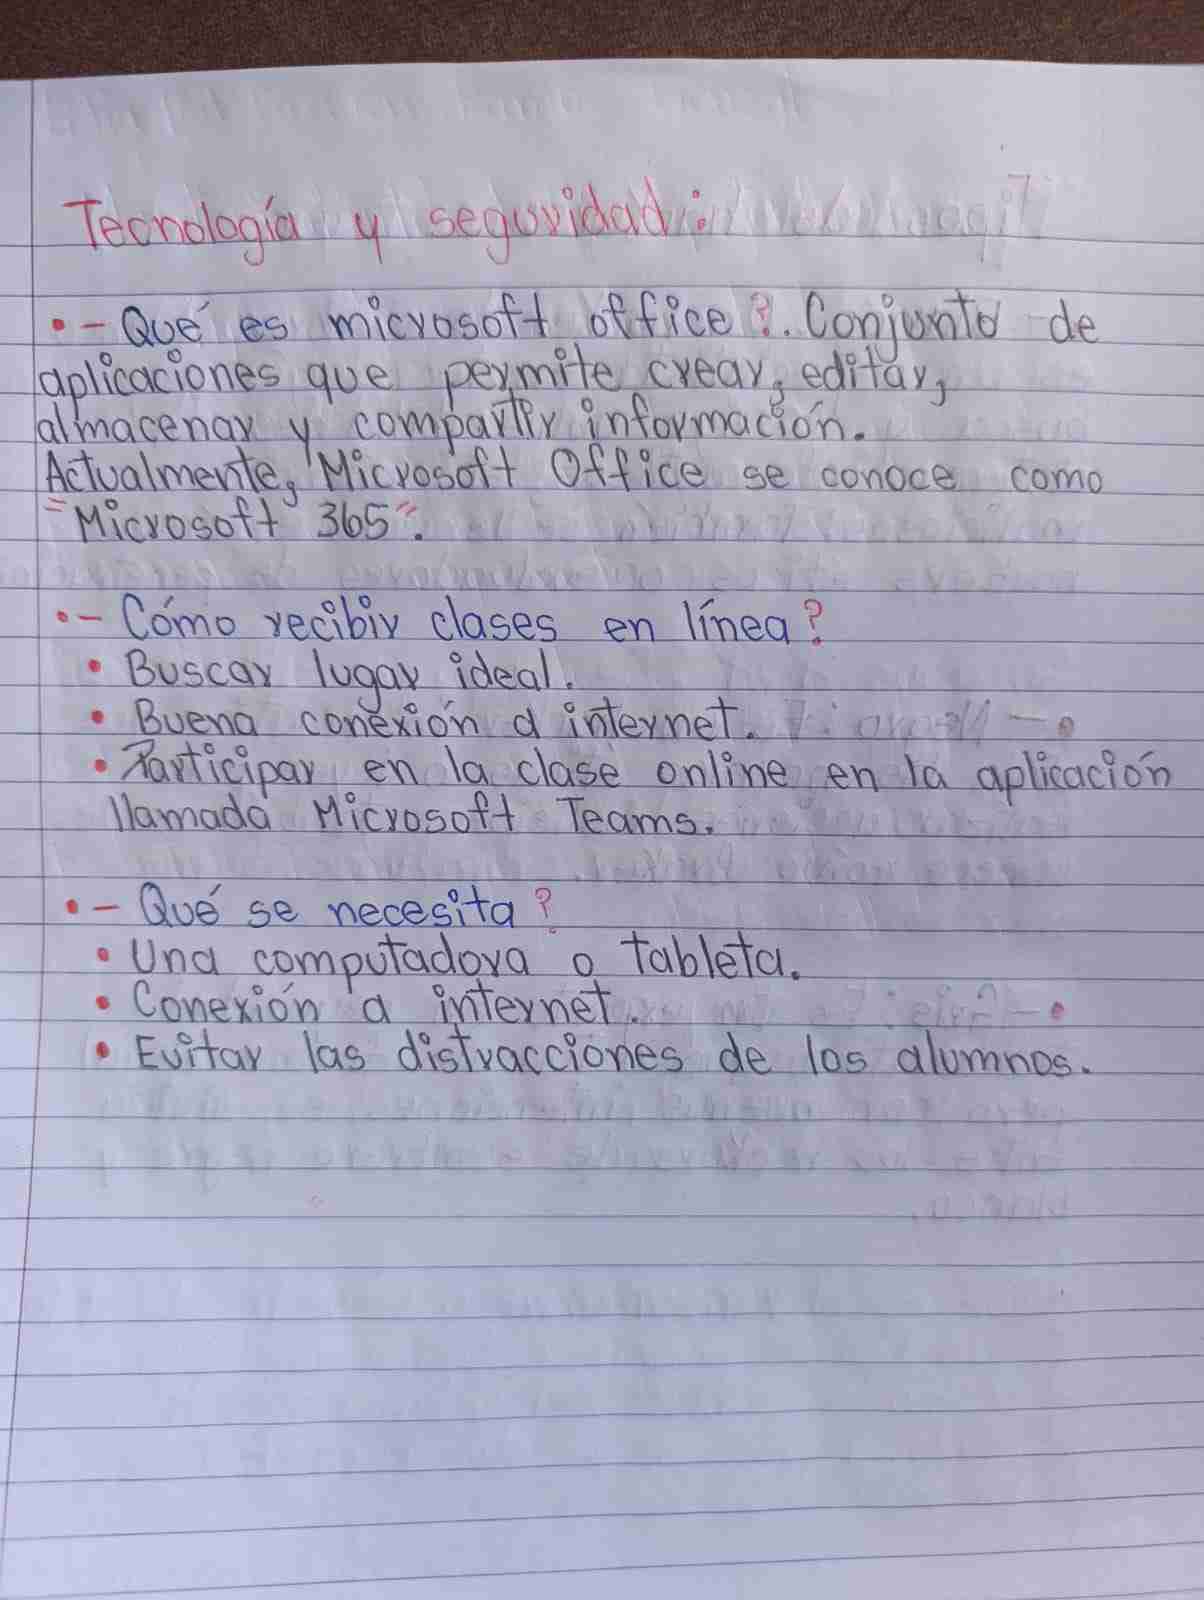 Tecnología y seguridad:
•- Qué es microsoft office?. Conjunto de
aplicaciones que permite crear, editar,
almacenar y compartir información.
Actualmente, Microsoft Office se conoce como
"Microsoft 365".
•- Cómo recibir clases en línea?
• Buscar lugar ideal.
• Buena conexión a internet.
• Participar en la clase online en la aplicación
llamada Microsoft Teams.
•- Qué se necesita?
• Una computadora o tableta.
• Conexión a internet.
• Evitar las distracciones de los alumnos.